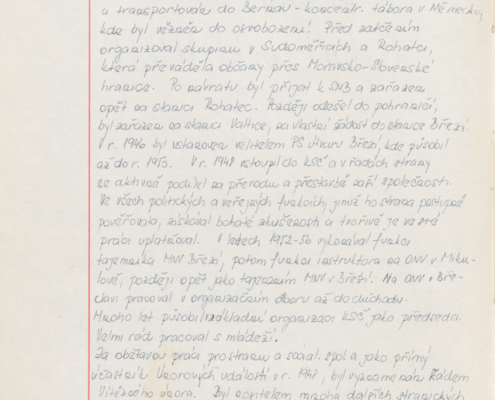 a transportován do Bernau - koncentr. tábora v Německu,
kde byl vězněn do osvobození. Před zatčením
organizoval skupinu v Sudoměřicích a Rohatci,
která převáděla občany přes Moravsko-Slovenské
hranice. Po návratu byl přijat k SNB a zařazen
opět na stanici Rohatec. Později odešel do pohraničí,
byl zařazen na stanici Valtice, na vlastní žádost do stanice Březí.
V r. 1946 byl ustanoven velitelem PS útvaru Březí, kde působil
až do r. 1953. V r. 1948 vstoupil do KSČ a v řadách strany
se aktivně podílel na přerodu a přestavbě naší společnosti.
Ve všech politických a veřejných funkcích, jimiž ho strana postupně
pověřovala, získával bohaté zkušenosti a tvořivě je ve své
práci uplatňoval. V letech 1952-56 vykonával funkci
tajemníka MNV Březí, potom funkci instruktora na ONV v Miku-
lově, později opět jako tajemník MNV v Březí. Na ONV v Bře-
clavi pracoval v organizačním odboru až do důchodu.
Mnoho let působil v základní organizaci KSČ jako předseda.
Velmi rád pracoval s mládeží.
Za obětavou práci pro stranu a social. spol. a jako přímý
účastník Únorových událostí v r. 1948, byl vyznamenán Řádem
Vítězného února. Byl nositelem mnoha dalších stranických